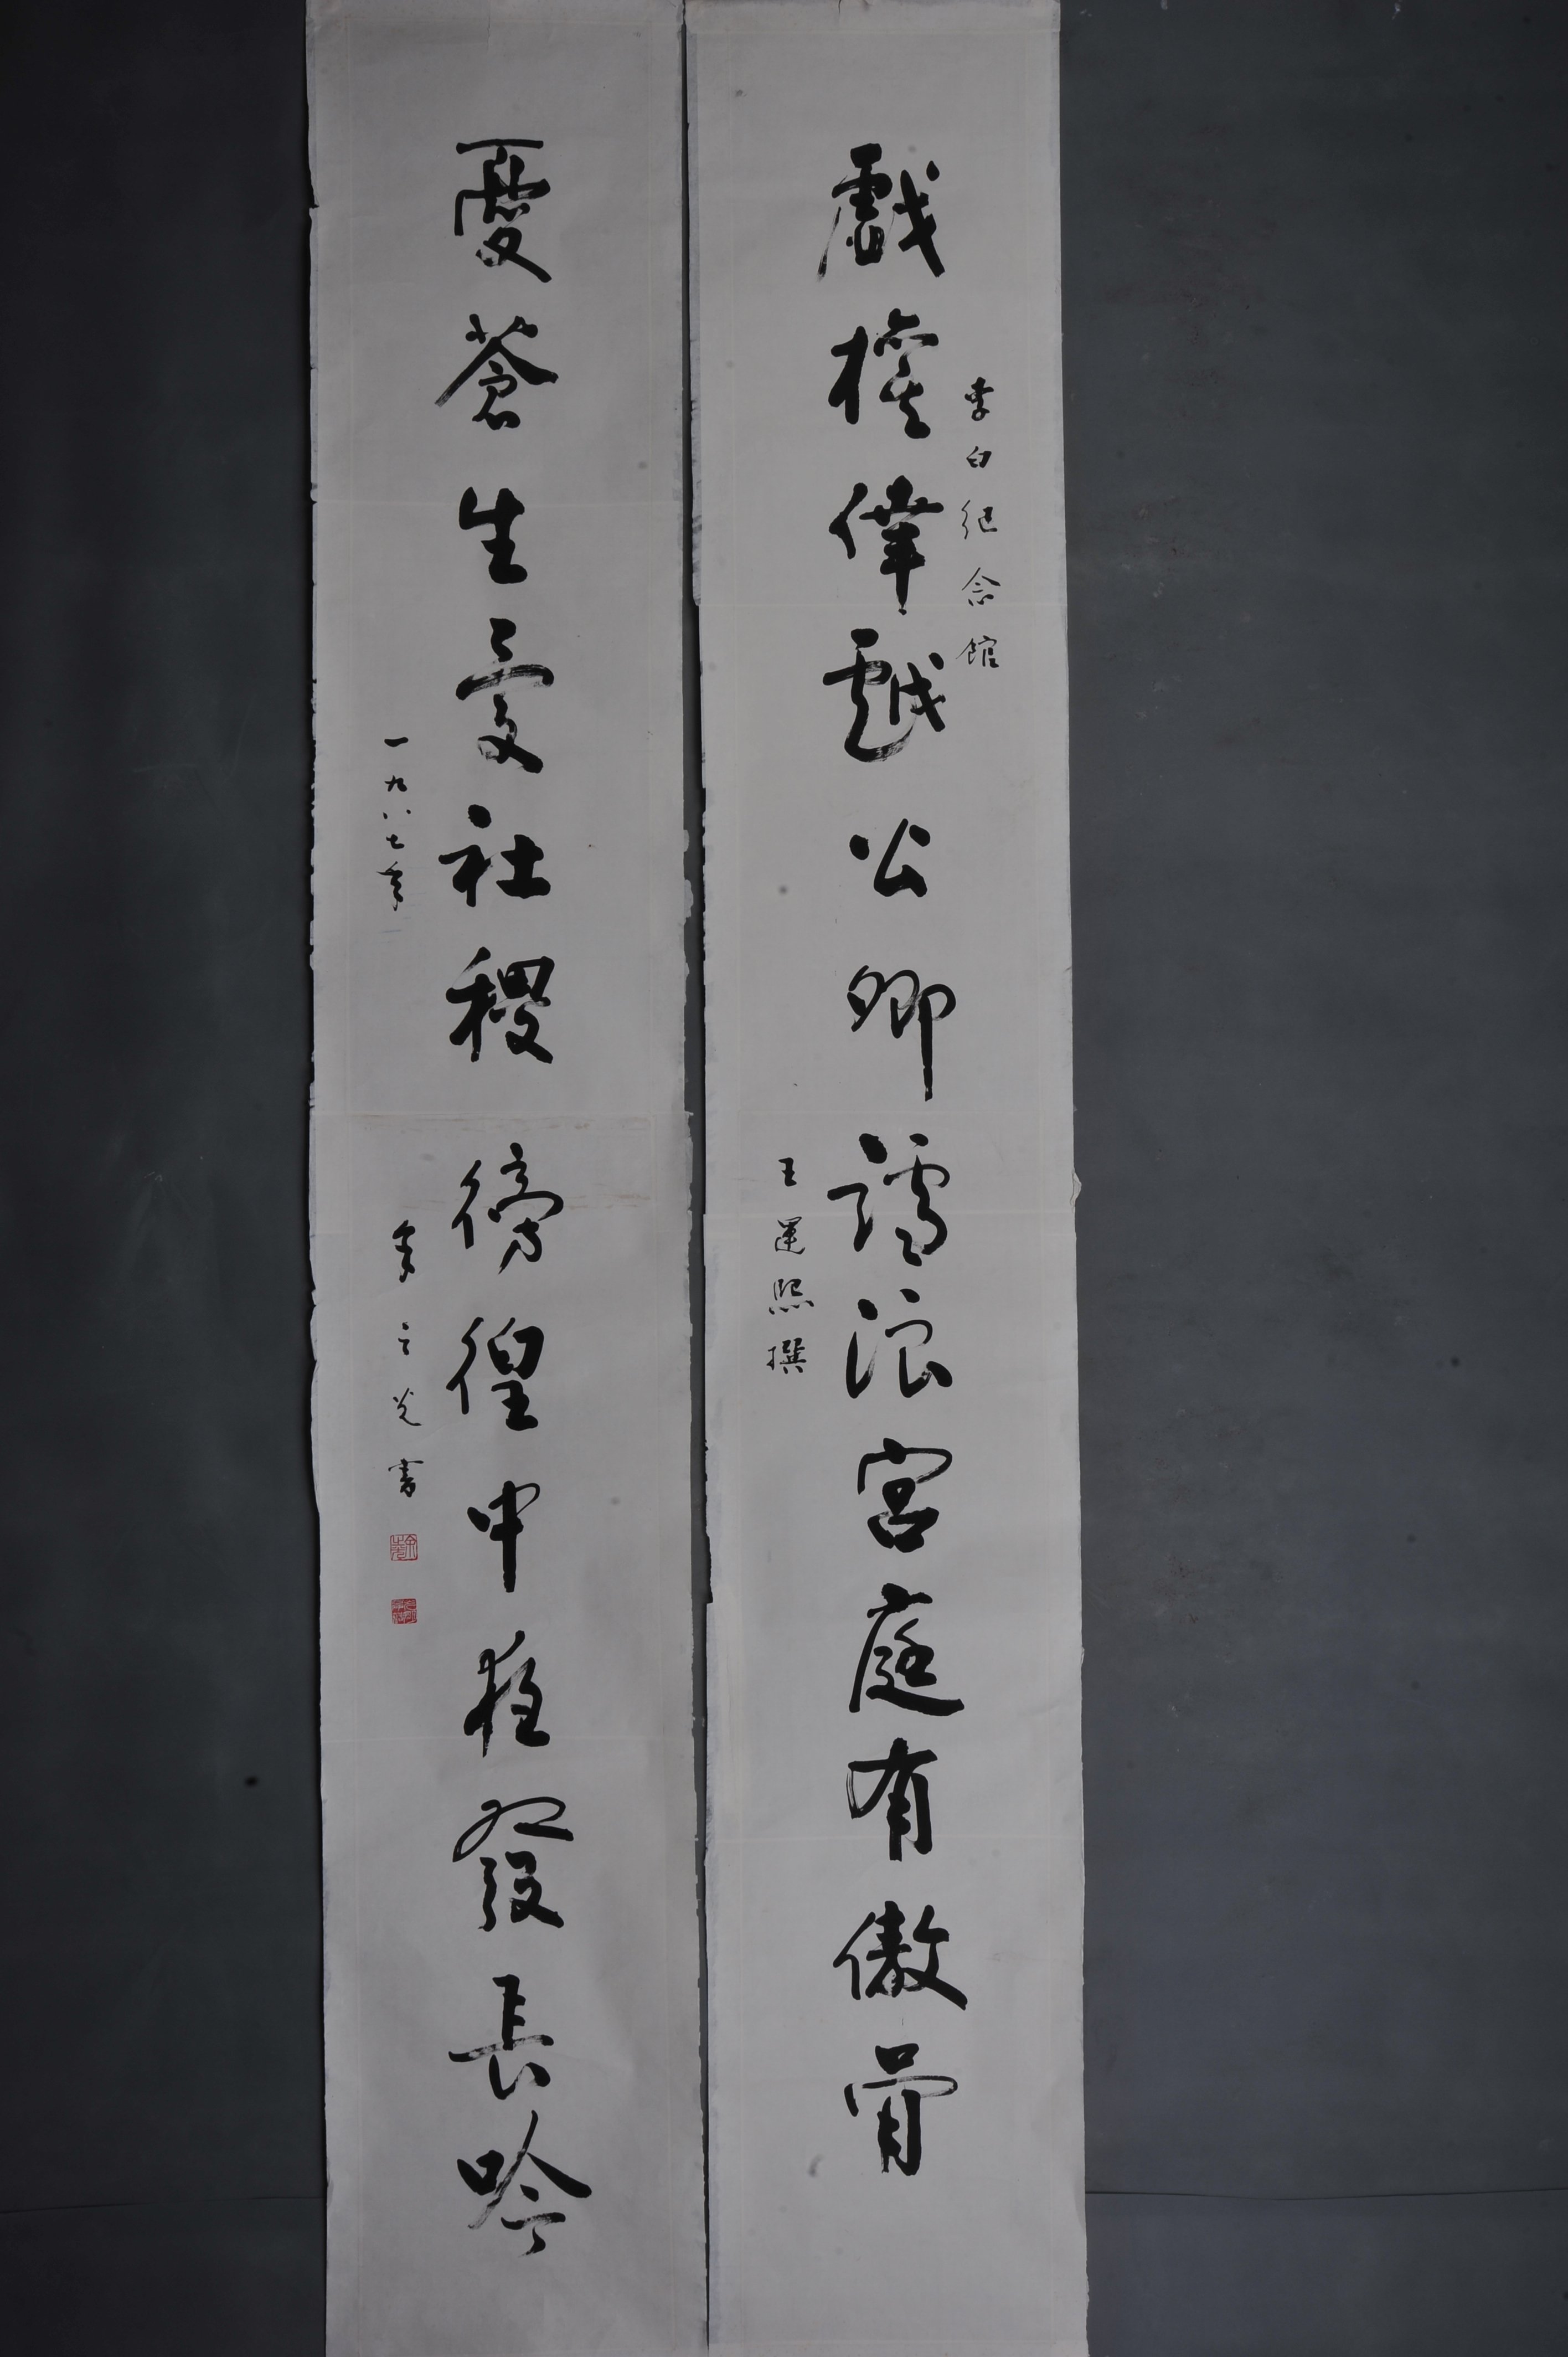 李白紀念館
戲權倖戲公卿謔浪宮庭有傲骨
王運熙撰
憂蒼生憂社稷徬徨中夜發長吟
一九八七年 余之光書